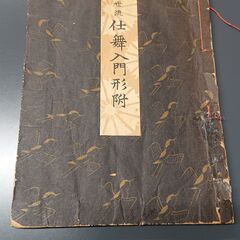 世流
仕舞入門形附